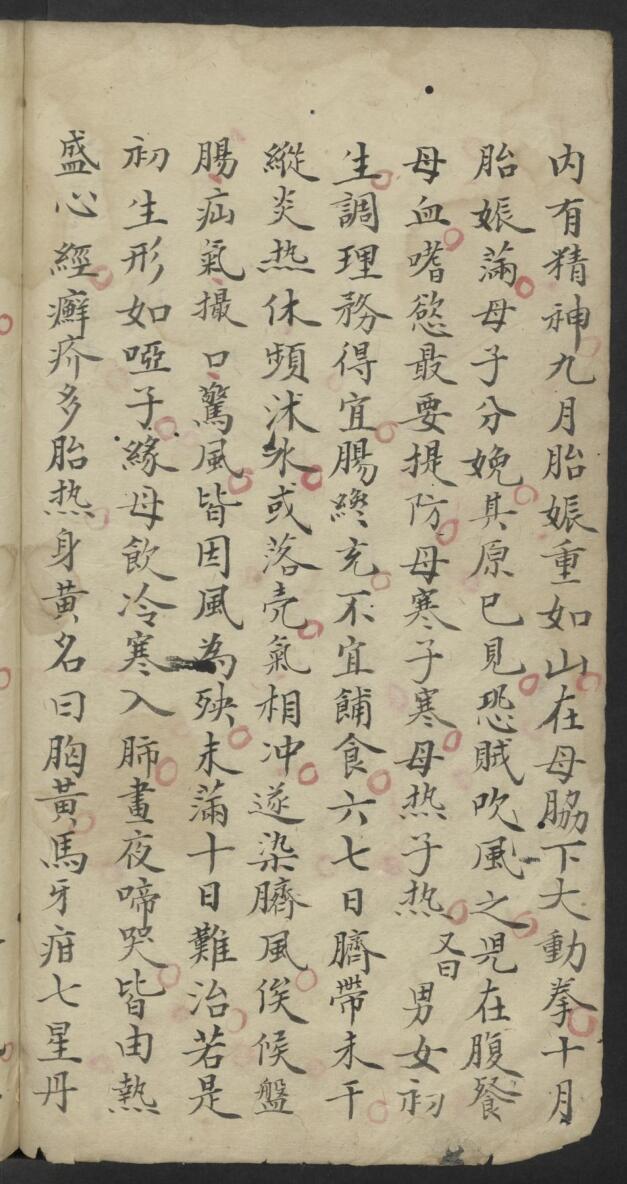 内有精神九月胎娠重如山在母脇下大動拳十月
胎娠滿母子分娩其原已見恐賊吹風之児在腹餐
母血嗜慾最要提防母寒子寒母热子热又曰男女初
生調理務得宜腸終充不宜餔食六七日臍帶未干
縱炎热休頻沭氷或落壳氣相冲遂染臍風俟候盤
腸疝氣撮口驚風皆因風為殃未滿十日難治若是
初生形如啞子緣母飲冷寒入肺晝夜啼哭皆由熱
盛心經癬疥多胎热身黃名曰胸黃馬牙疳七星丹